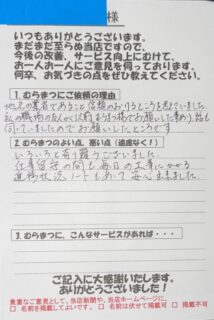 様
いつもありがとうございます。
まだまだ至らぬ当店ですので、
今後の改善、サービス向上にむけて、
お一人お一人にご意見を伺っております。
何卒、お気づきの点をぜひ教えてください。
1. むらまつにご依頼の理由
地元の業者であること、信頼のおけるところを思っていました。
私の職場の友人が以前むらまつ様でお願いした
伺っていましたのでお願いしたところです
2. むらまつのよい点、悪い点（遠慮なく！）
いろいろと有り難うございました。
仕事留守の間も毎日の工事にかかる
進捗状況ノートもあって安心出来ました。
3. むらまつに、こんなサービスがあれば・・・
ご記入に大感謝いたします。
ありがとうございました！
貴重なご意見として、当店新聞や、当店ホームページに、
□ 名前を掲載してよいです。□ 名前なしで掲載可 □ 掲載不可